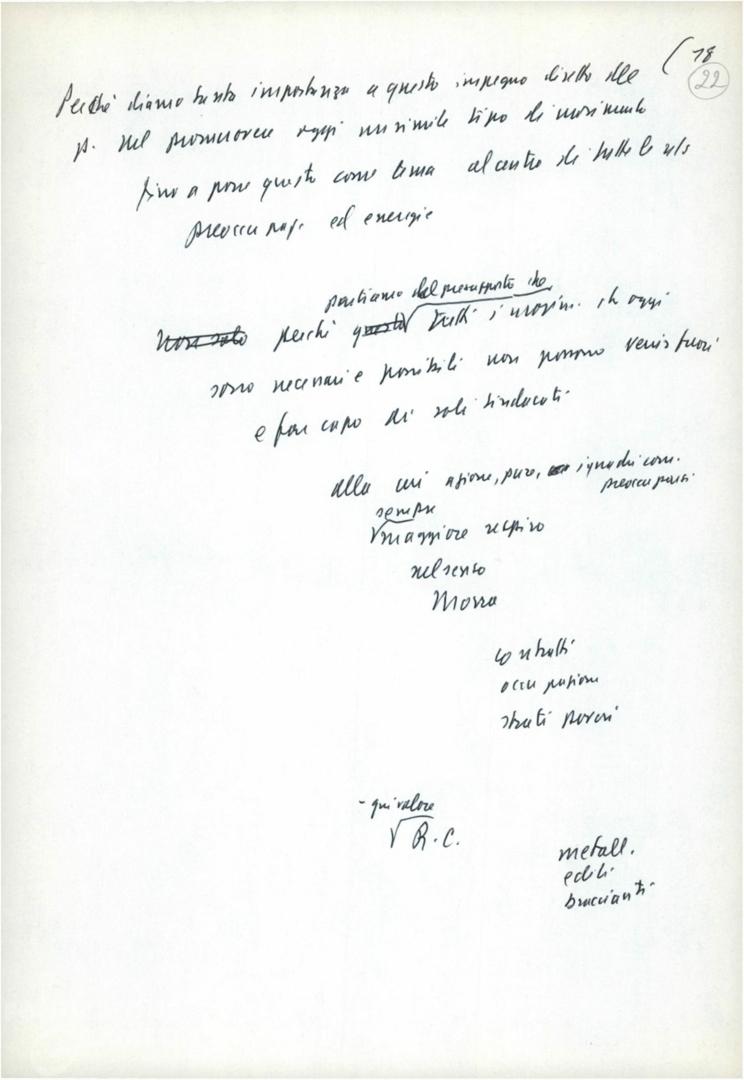 (18
22
Perché diamo tanta importanza a questo impegno diretto del
p. nel promuovere oggi un simile tipo di movimento
fino a porre questo come tema al centro di tutte le ns
preoccupaz. ed energie
partiamo dal presupposto che
non solo perché questo tutti i movim. ch oggi
sono necessari e possibili non possono venir fuori
e far capo ai soli sindacati
alla cui azione, pure, i quadri com.
preoccuparsi
sempre
maggiore respiro
nel senso
contratti
occupazione
strati poveri
- qui valore
R.C.
metall.
edili
braccianti